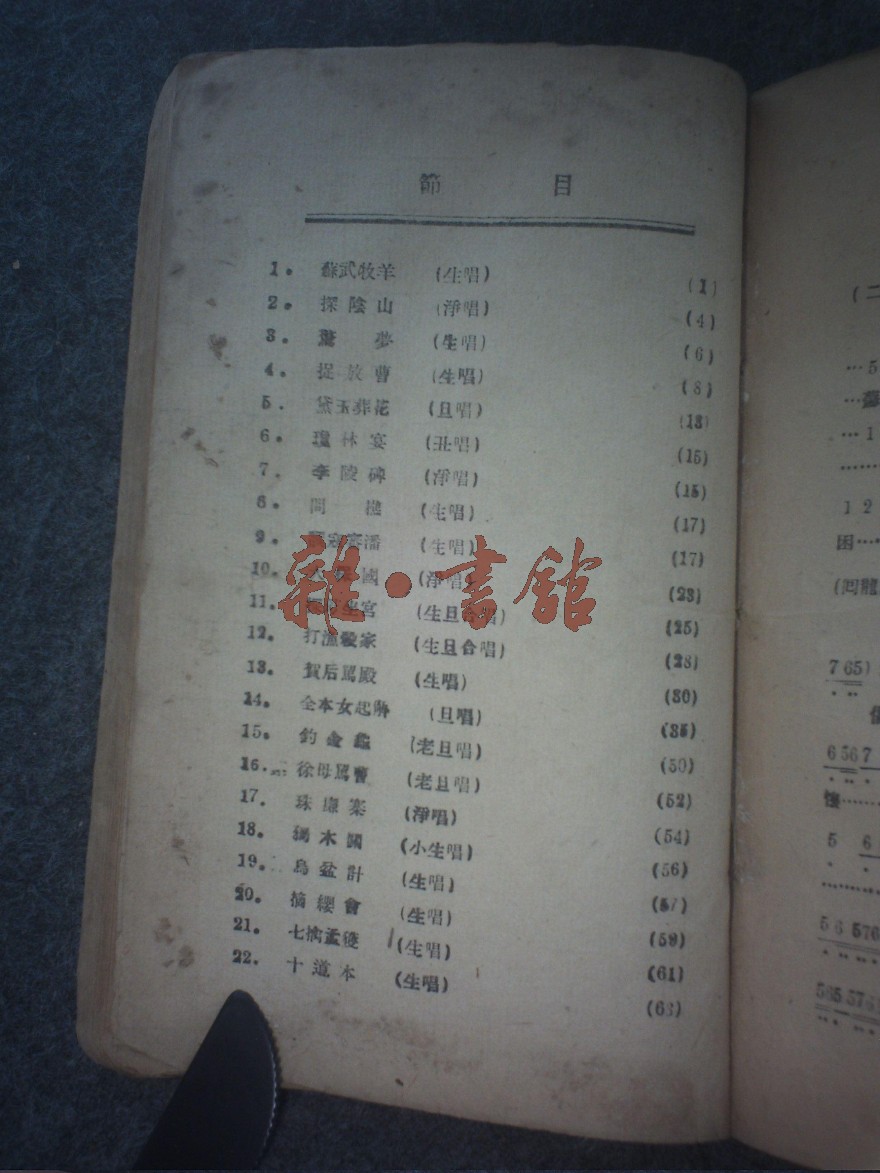 節 目
1. 蘇武牧羊 (生唱) (1)
2. 探陰山 (淨唱) (4)
3. 驚夢 (生唱) (6)
4. 捉放曹 (生唱) (8)
5. 黛玉葬花 (旦唱) (13)
6. 瓊林宴 (丑唱) (15)
7. 李陵碑 (淨唱) (15)
8. 問樵 (生唱) (17)
9. 潘 (生唱) (17)
10. 國 (淨唱) (23)
11. 宮 (生旦合唱) (25)
12. 打漁殺家 (生旦合唱) (28)
13. 賀后罵殿 (生唱) (30)
14. 全本女起解 (旦唱) (35)
15. 釣金龜 (老旦唱) (50)
16. 徐母罵曹 (老旦唱) (52)
17. 珠廉寨 (淨唱) (54)
18. 獨木關 (小生唱) (56)
19. 烏盆計 (生唱) (57)
20. 摘纓會 (生唱) (59)
21. 七擒孟獲 (生唱) (61)
22. 十道本 (生唱) (63)
雜·書館
(二
…5
…1
1 2
困……
7 65)
6 567
懷……
5 6
5 6 576
565576